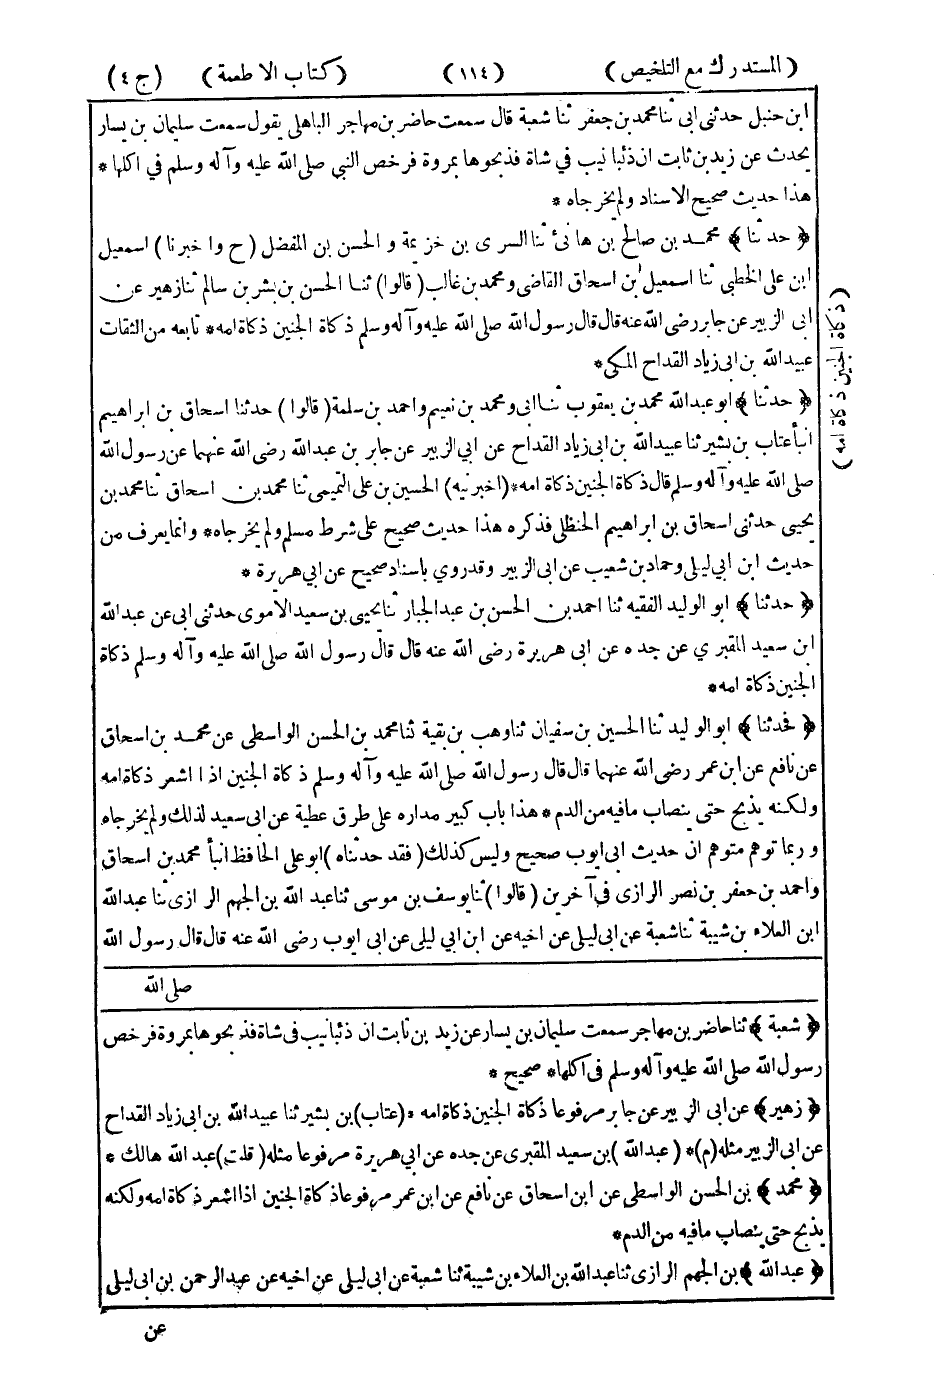 (المستدرك مع التلخيص) (١١٤) (كتاب الاطعمة) (ج ٤)
ابن حنبل حدثني ابي ثنا محمد بن جعفر ثنا شعبة قال سمعت حاضر بن مهاجر الباهلي يقول سمعت سليمان بن يسار
يحدث عن زيد بن ثابت ان ذئبا نيب في شاة فذبحوها بمروة فرخص النبي صلى الله عليه وآله وسلم في اكلها *
هذا حديث صحيح الاسناد ولم يخرجاه *
﴿ حدثنا ﴾ محمد بن صالح بن هانئ ثنا السرى بن خزيمة و الحسن بن المفضل (ح واخبرنا) اسمعيل
ابن على الخطبي ثنا اسمعيل بن اسحاق القاضى ومحمد بن غالب (قالوا) ثنا الحسن بن بشر بن سالم ثنا زهير عن
ابى الزبير عن جابر رضى الله عنه قال قال رسول الله صلى الله عليه وآله وسلم ذكاة الجنين ذكاة امه* تابعه من الثقات
عبيد الله بن ابى زياد القداح المكى*
﴿ حدثنا ﴾ ابو عبدالله محمد بن يعقوب ثنا ابى ومحمد بن نعيم واحمد بن سلمة (قالوا) حدثنا اسحاق بن ابراهيم
انبأ عتاب بن بشير ثنا عبيدالله بن ابى زياد القداح عن ابي الزبير عن جابر بن عبدالله رضى الله عنهما عن رسول الله
صلى الله عليه وآله وسلم قال ذكاة الجنين ذكاة امه* (اخبرنيه) الحسين بن على التميمى ثنا محمد بن اسحاق ثنا محمد بن
يحيى حدثنى اسحاق بن ابراهيم الحنظلى فذكره هذا حديث صحيح على شرط مسلم ولم يخرجاه* وانما يعرف من
حديث ابن ابي ليلى وحماد بن شعيب عن ابى الزبير وقد روي باسناد صحيح عن ابي هريرة *
﴿ حدثنا ﴾ ابو الوليد الفقيه ثنا احمد بن الحسن بن عبد الجبار ثنا يحيى بن سعيد الاموى حدثنى ابى عن عبدالله
ابن سعيد المقبري عن جده عن ابى هريرة رضى الله عنه قال قال رسول الله صلى الله عليه وآله وسلم ذكاة
الجنين ذكاة امه*
﴿ فحدثنا ﴾ ابو الوليد ثنا الحسين بن سفيان ثنا وهب بن بقية ثنا محمد بن الحسن الواسطى عن محمد بن اسحاق
عن نافع عن ابن عمر رضى الله عنهما قال قال رسول الله صلى الله عليه وآله وسلم ذكاة الجنين اذا اشعر ذكاة امه
ولكنه يذبح حتى ينصاب مافيه من الدم * هذا باب كبير مداره على طرق عطية عن ابى سعيد لذلك ولم يخرجاه
وربما توهم متوهم ان حديث ابى ايوب صحيح وليس كذلك (فقد حدثناه) ابو على الحافظ انبأ محمد بن اسحاق
واحمد بن جعفر بن نصر الرازى في آخرين (قالوا) ثنا يوسف بن موسى ثنا عبد الله بن الجهم الرازى ثنا عبدالله
ابن العلاء بن شيبة ثنا شعبة عن ابى ليلى عن اخيه عن ابن ابي ليلى عن ابى ايوب رضى الله عنه قال قال رسول الله
صلى الله
(ذكاة الجنين ذكاة امه)
﴿ شعبة ﴾ ثنا حاضر بن مهاجر سمعت سليمان بن يسار عن زيد بن ثابت ان ذئبا نيب فى شاة فذبحوها بمروة فرخص
رسول الله صلى الله عليه وآله وسلم فى اكلها* صحيح *
﴿ زهير ﴾ عن ابى الزبير عن جابر مرفوعا ذكاة الجنين ذكاة امه * (عتاب) بن بشير ثنا عبيد الله بن ابى زياد القداح
عن ابى الزبير مثله (م)* (عبدالله) بن سعيد المقبرى عن جده عن ابي هريرة مرفوعا مثله (قلت) عبد الله هالك *
﴿ محمد ﴾ بن الحسن الواسطى عن ابن اسحاق عن نافع عن ابن عمر مرفوعا ذكاة الجنين اذا اشعر ذكاة امه ولكنه
يذبح حتى ينصاب مافيه من الدم*
﴿ عبدالله ﴾ بن الجهم الرازى ثنا عبدالله بن العلاء بن شيبة ثنا شعبة عن ابى ليلى عن اخيه عن عبد الرحمن بن ابى ليلى
عن